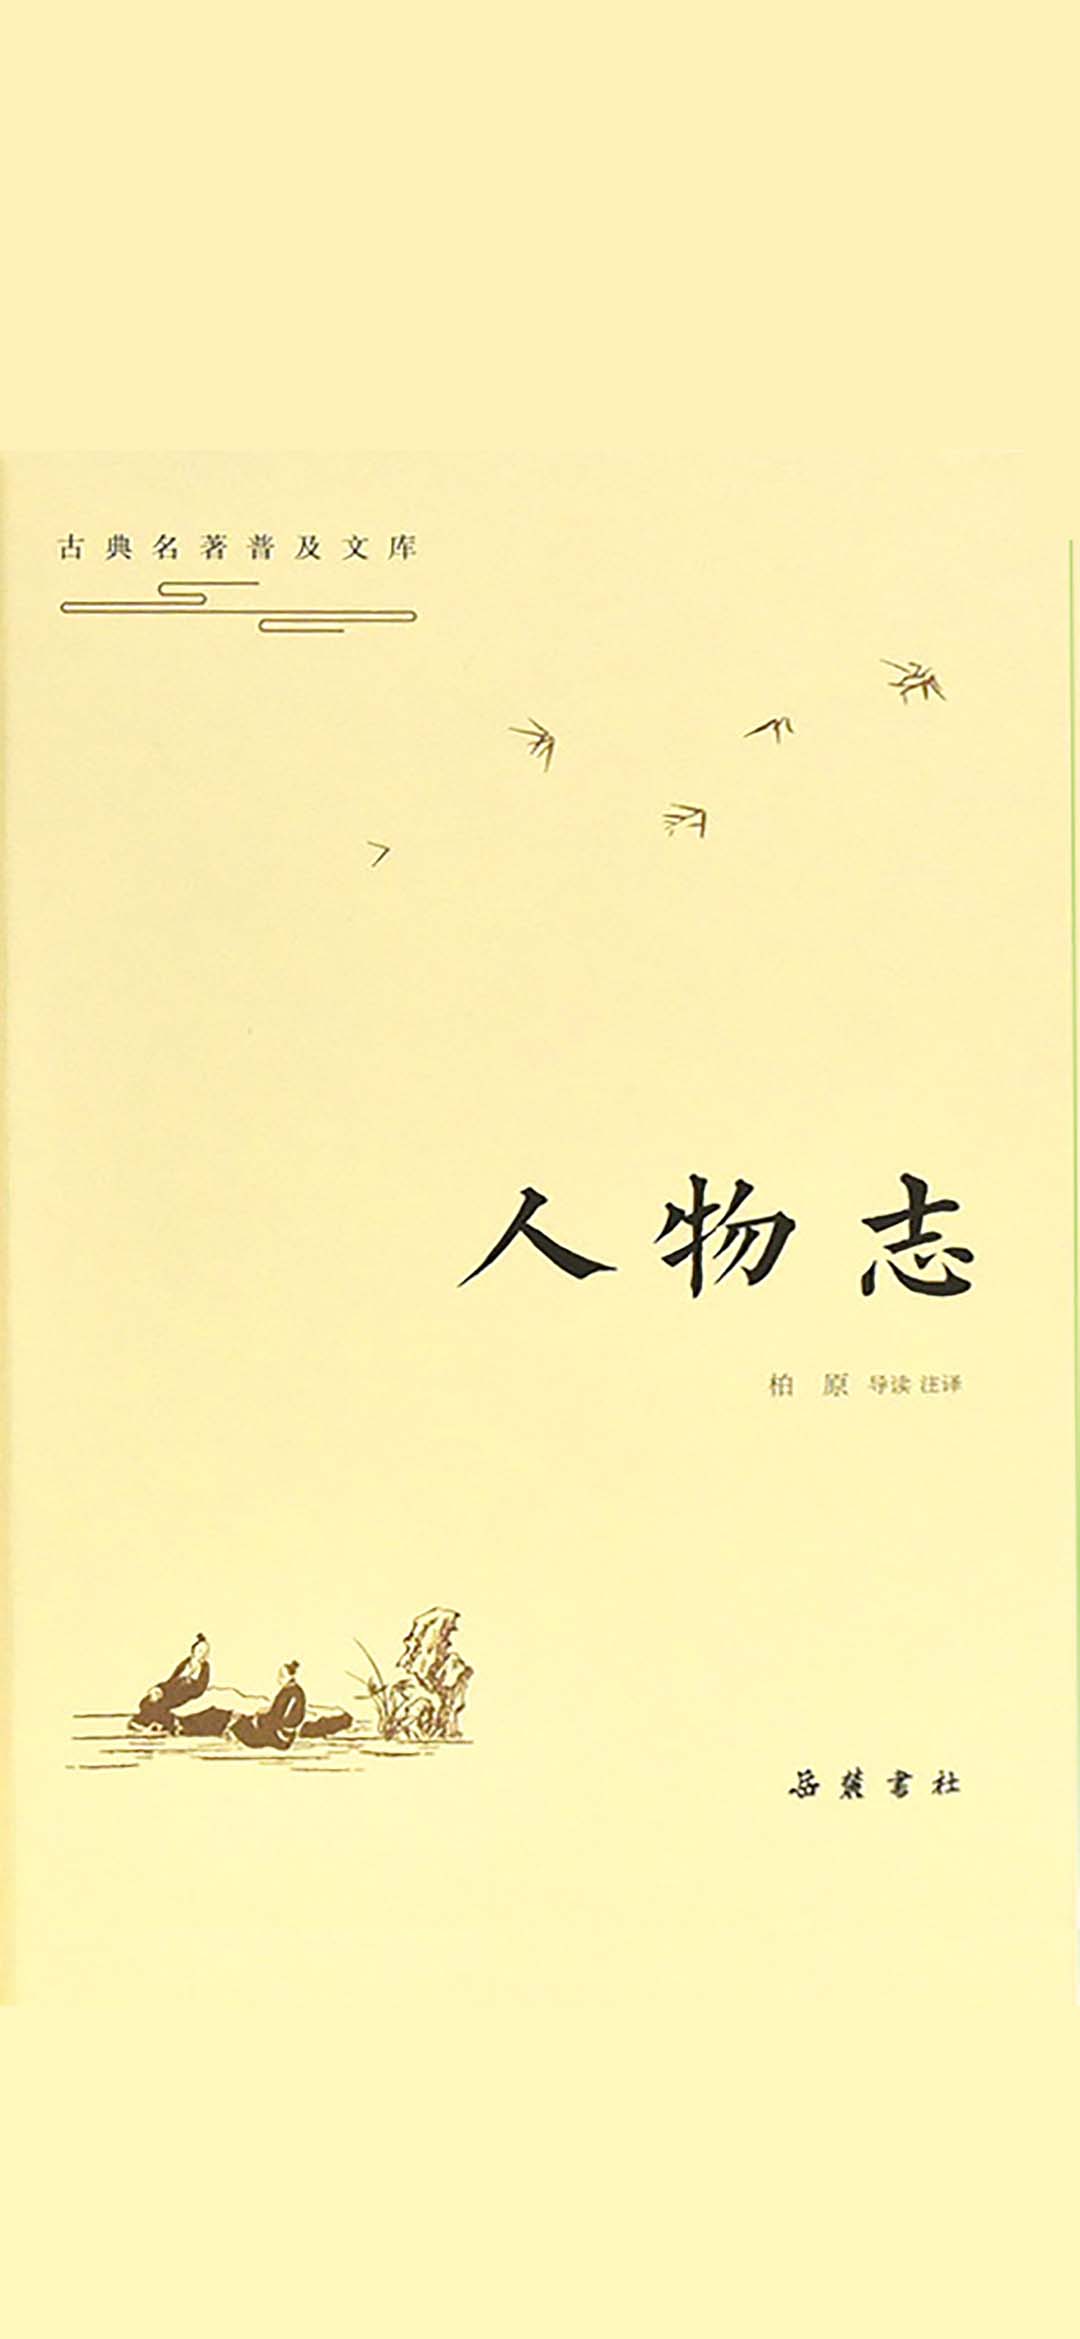 古典名著普及文库
人物志
柏原 导读 注译
岳麓书社